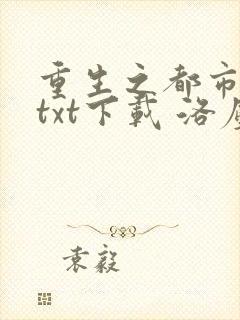 重生之都市
txt下载 洛
袁毅